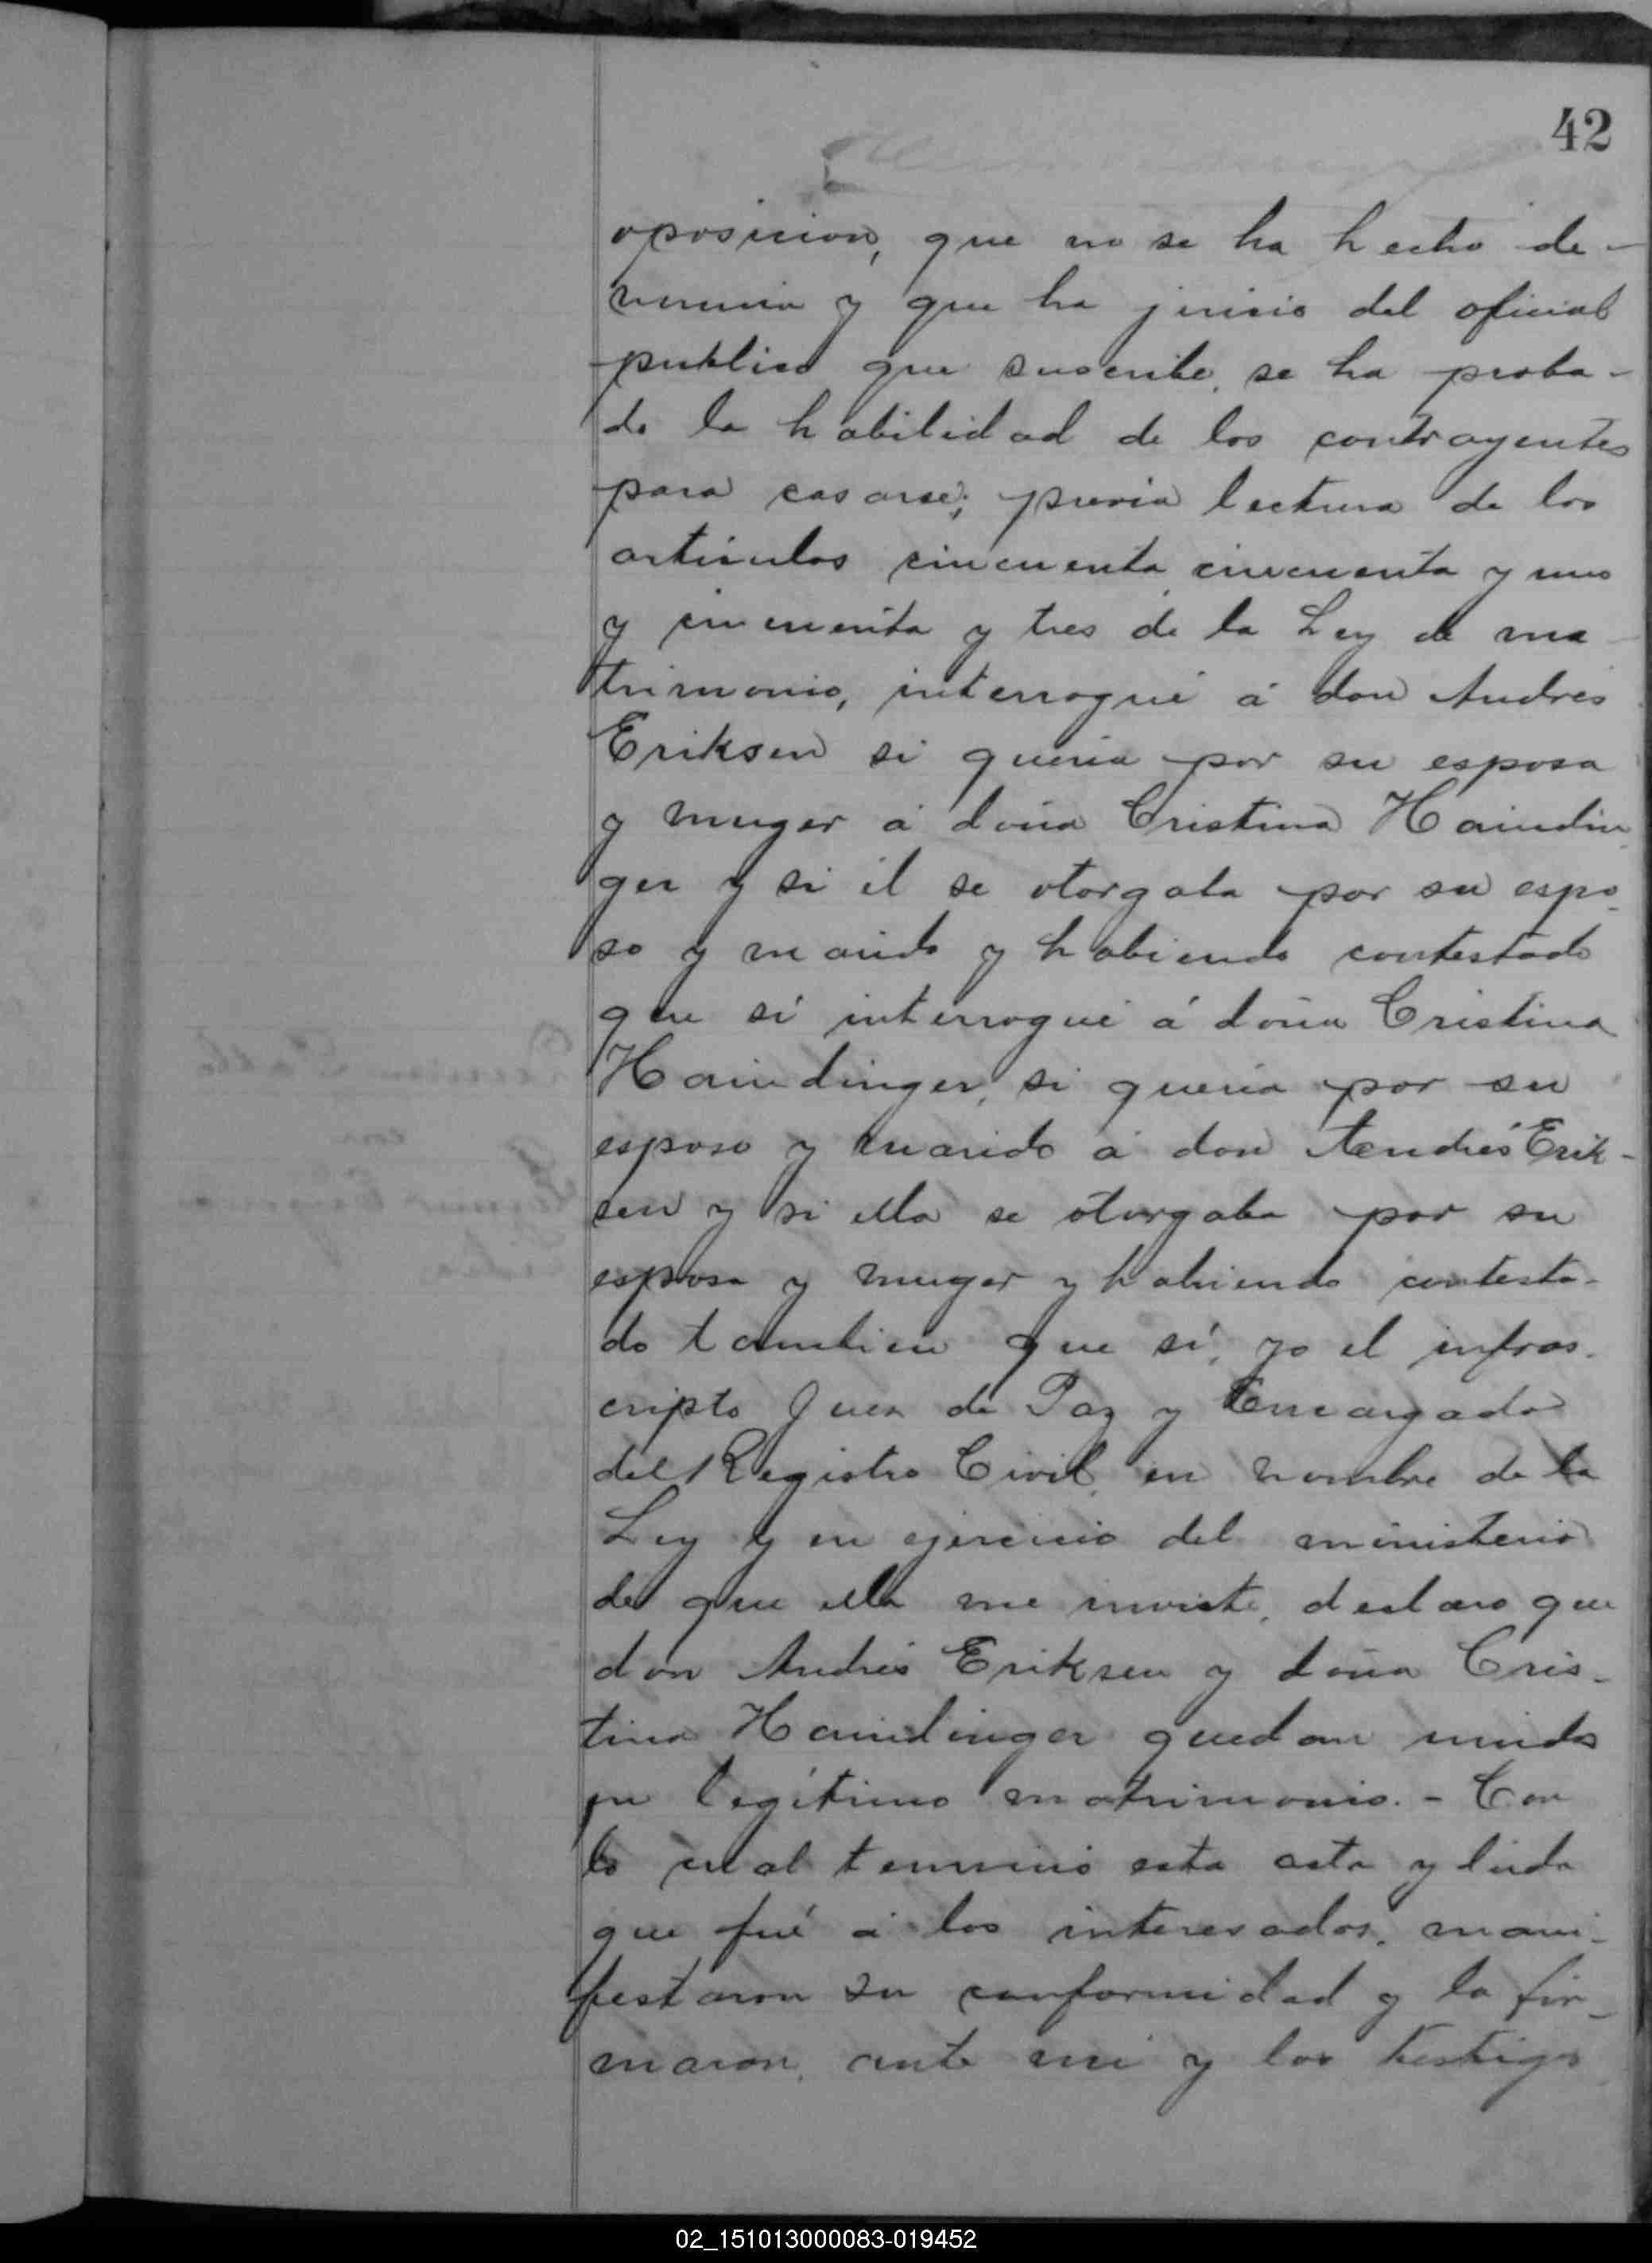 42
oposicion, que no se ha hecho de-
nuncia y que ha juicio del oficial
publico que suscribe, se ha proba-
do la habilidad de los contrayentes
para casarse; previa lectura de los
articulos cincuenta, cincuenta y uno
y cincuenta y tres de la Ley de ma
trimonio, interrogué á don Andres
Eriksen si queria por su esposa
y muger á doña Cristina Haindin
ger y si él se otorgaba por su espo-
so y marido y habiendo contestado
que si interrogué á doña Cristina
Haindinger, si queria por su
esposo y marido á don Andrés Erik-
sen y si ella se otorgaba por su
esposa y muger y habiendo contesta-
do tambien que sí, yo el infras-
cripto Juez de Paz y Encargado
del Registro Civil, en nombre de la
Ley y en ejercicio del ministerio
de que ella me inviste, declaro que
don Andrés Eriksen y doña Cris-
tina Haindinger quedan unidos
en legítimo matrimonio. - Con
lo cual terminó esta acta y leida
que fué á los interesados, mani-
festaron su conformidad y la fir-
maron, ante mi y los testigos
02_151013000083-019452